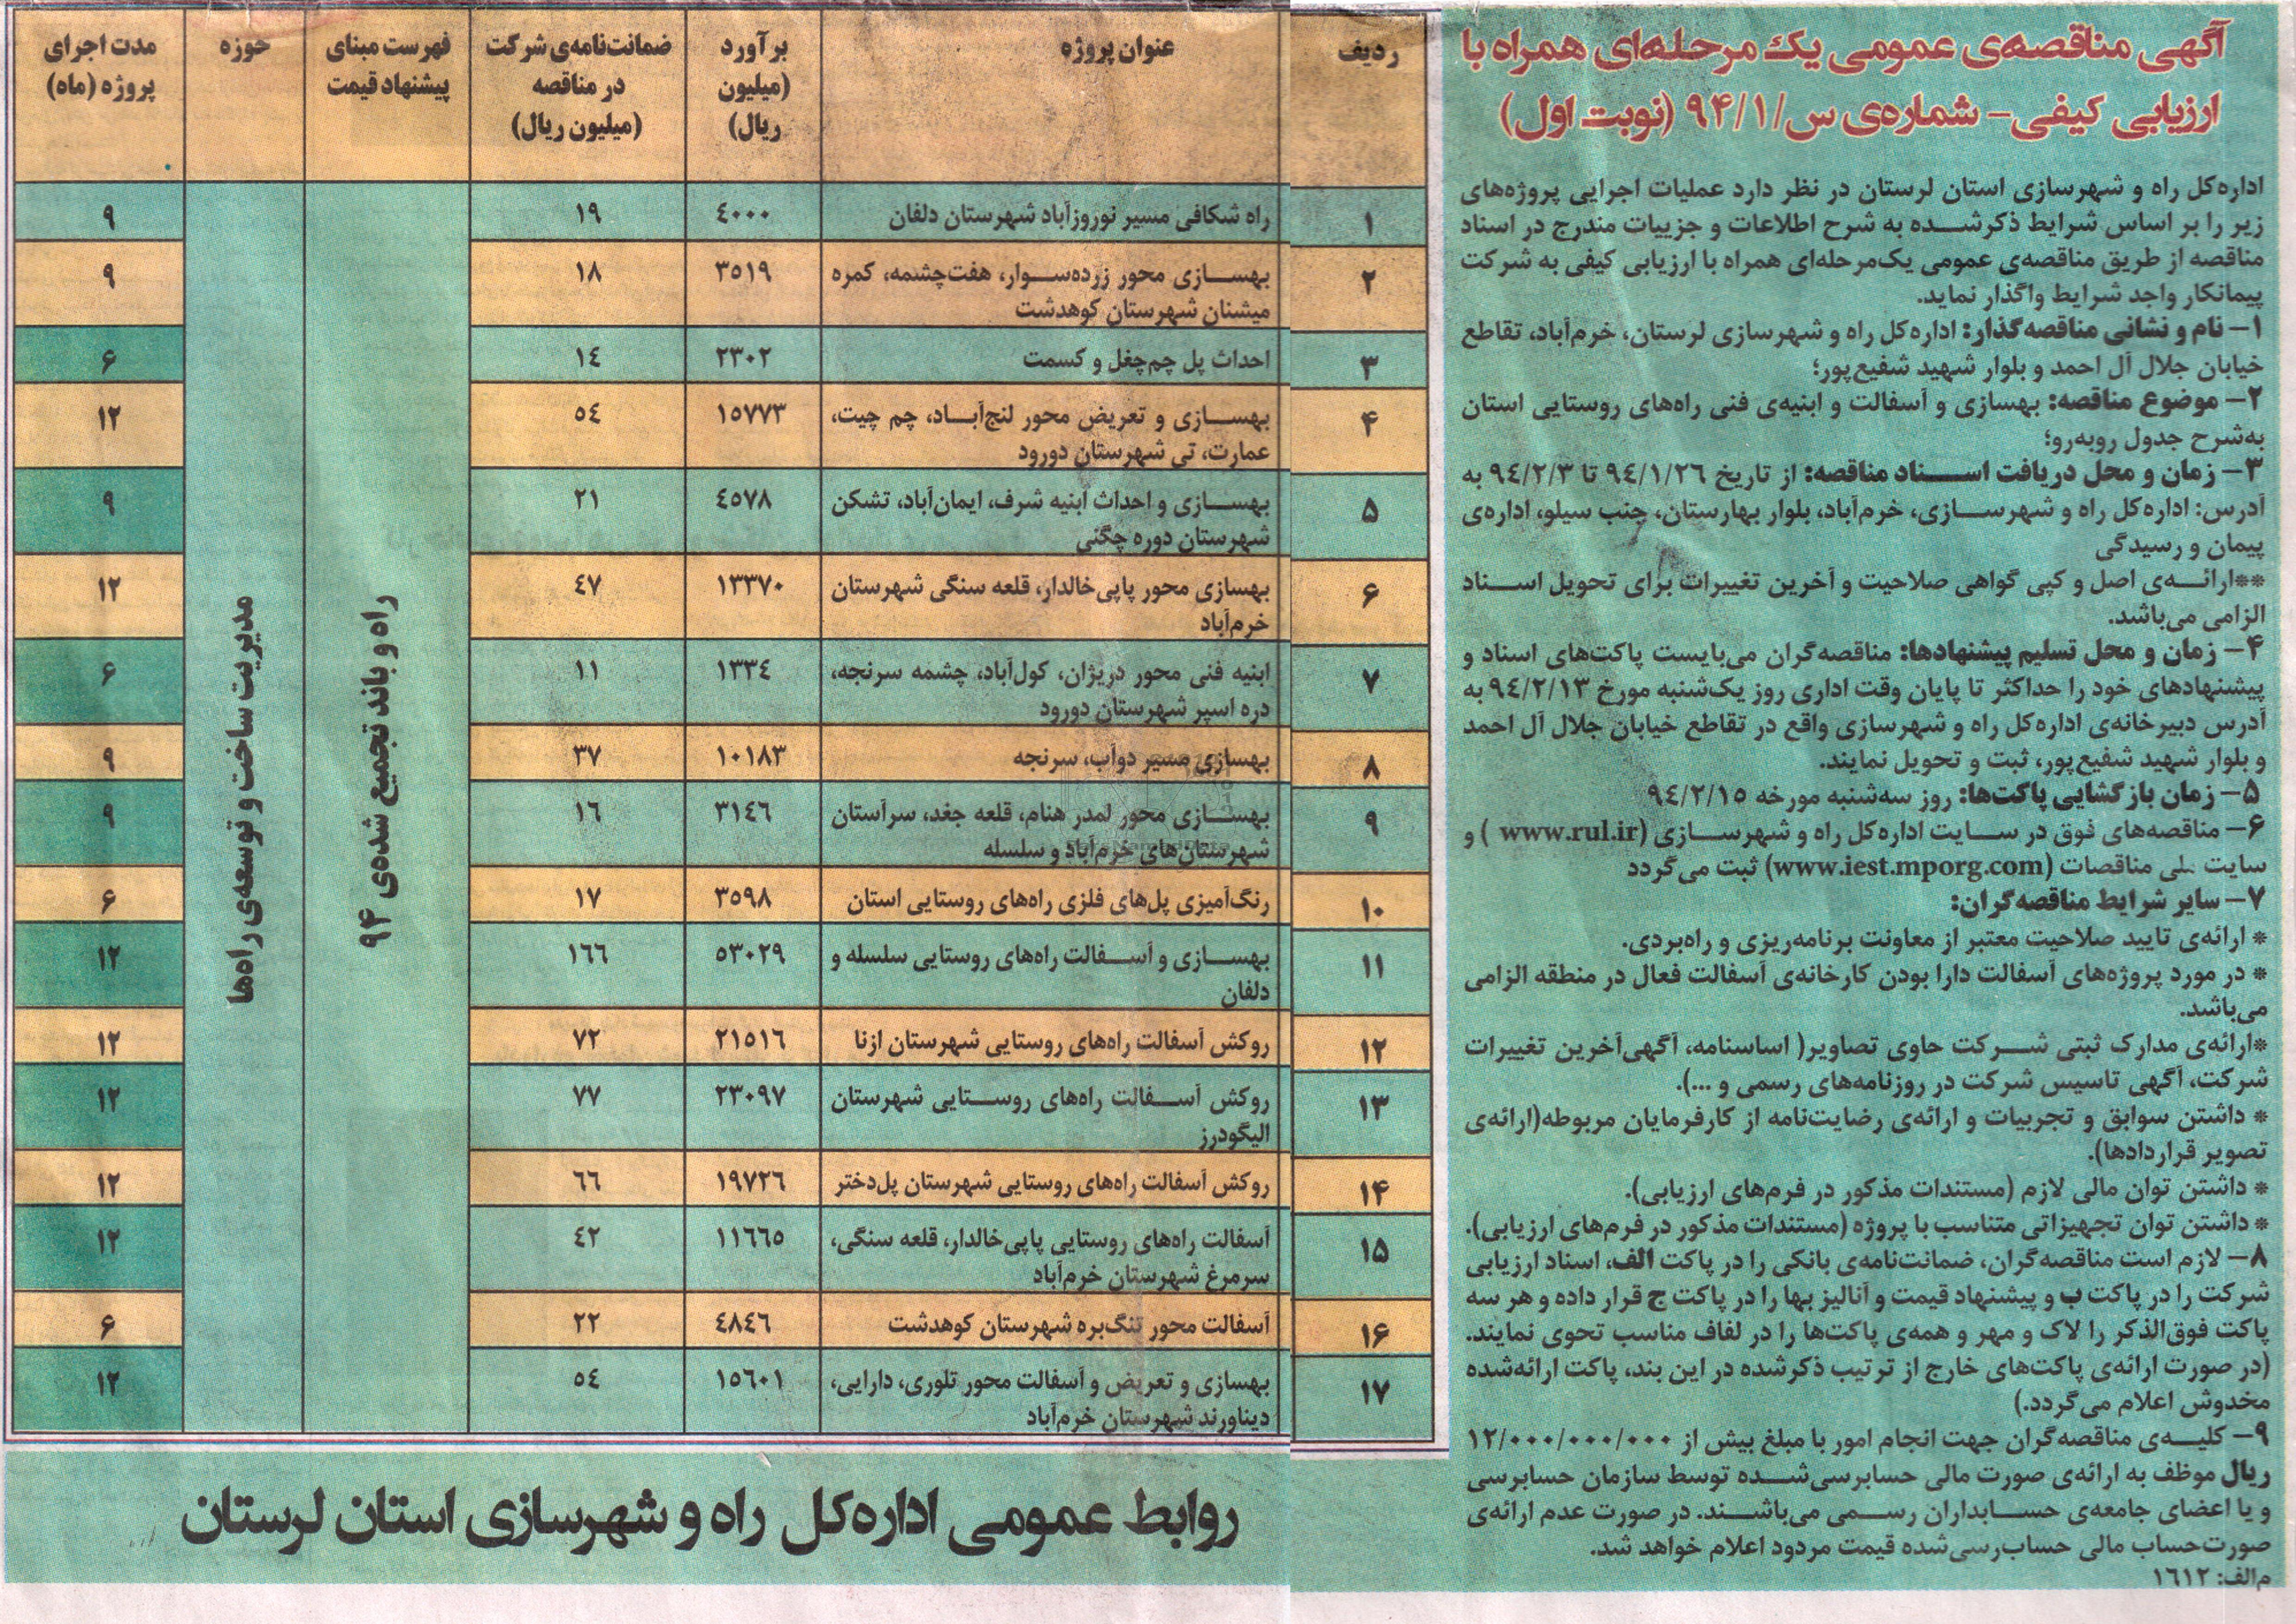 آگهی مناقصه‌ی عمومی یک مرحله‌ای همراه با
ارزیابی کیفی- شماره‌ی س/۹۴/۱ (نوبت اول)
اداره‌کل راه و شهرسازی استان لرستان در نظر دارد عملیات اجرایی پروژه‌های
زیر را بر اساس شرایط ذکرشده به شرح اطلاعات و جزییات مندرج در اسناد
مناقصه از طریق مناقصه‌ی عمومی یک‌مرحله‌ای همراه با ارزیابی کیفی به شرکت
پیمانکار واجد شرایط واگذار نماید.
۱- نام و نشانی مناقصه‌گذار: اداره‌کل راه و شهرسازی لرستان، خرم‌آباد، تقاطع
خیابان جلال آل احمد و بلوار شهید شفیع‌پور؛
۲- موضوع مناقصه: بهسازی و آسفالت و ابنیه‌ی فنی راه‌های روستایی استان
به‌شرح جدول روبه‌رو؛
۳- زمان و محل دریافت اسناد مناقصه: از تاریخ ۹٤/۱/۲٦ تا ۹٤/۲/۳ به
آدرس: اداره‌کل راه و شهرسازی، خرم‌آباد، بلوار بهارستان، جنب سیلو، اداره‌ی
پیمان و رسیدگی
**ارائه‌ی اصل و کپی گواهی صلاحیت و آخرین تغییرات برای تحویل اسناد
الزامی می‌باشد.
۴- زمان و محل تسلیم پیشنهادها: مناقصه‌گران می‌بایست پاکت‌های اسناد و
پیشنهادهای خود را حداکثر تا پایان وقت اداری روز یک‌شنبه مورخ ۹٤/۲/۱۳ به
آدرس دبیرخانه‌ی اداره‌کل راه و شهرسازی واقع در تقاطع خیابان جلال آل احمد
و بلوار شهید شفیع‌پور، ثبت و تحویل نمایند.
۵- زمان بازگشایی پاکت‌ها: روز سه‌شنبه مورخه ۹٤/۲/۱٥
۶- مناقصه‌های فوق در سایت اداره‌کل راه و شهرسازی (www.rul.ir ) و
سایت ملی مناقصات (www.iest.mporg.com) ثبت می‌گردد
۷- سایر شرایط مناقصه‌گران:
* ارائه‌ی تایید صلاحیت معتبر از معاونت برنامه‌ریزی و راه‌بردی.
* در مورد پروژه‌های آسفالت دارا بودن کارخانه‌ی آسفالت فعال در منطقه الزامی
می‌باشد.
*ارائه‌ی مدارک ثبتی شرکت حاوی تصاویر( اساسنامه، آگهی‌آخرین تغییرات
شرکت، آگهی تاسیس شرکت در روزنامه‌های رسمی و ...).
* داشتن سوابق و تجربیات و ارائه‌ی رضایت‌نامه از کارفرمایان مربوطه(ارائه‌ی
تصویر قراردادها).
* داشتن توان مالی لازم (مستندات مذکور در فرم‌های ارزیابی).
* داشتن توان تجهیزاتی متناسب با پروژه (مستندات مذکور در فرم‌های ارزیابی).
۸- لازم است مناقصه‌گران، ضمانت‌نامه‌ی بانکی را در پاکت الف، اسناد ارزیابی
شرکت را در پاکت ب و پیشنهاد قیمت و آنالیز بها را در پاکت ج قرار داده و هر سه
پاکت فوق‌الذکر را لاک و مهر و همه‌ی پاکت‌ها را در لفاف مناسب تحوی نمایند.
(در صورت ارائه‌ی پاکت‌های خارج از ترتیب ذکرشده در این بند، پاکت ارائه‌شده
مخدوش اعلام می‌گردد.)
۹- کلیه‌ی مناقصه‌گران جهت انجام امور با مبلغ بیش از ۱۲/۰۰۰/۰۰۰/۰۰۰
ریال موظف به ارائه‌ی صورت مالی حسابرسی‌شده توسط سازمان حسابرسی
و یا اعضای جامعه‌ی حسابداران رسمی می‌باشند. در صورت عدم ارائه‌ی
صورت‌حساب مالی حساب‌رسی‌شده قیمت مردود اعلام خواهد شد.
م‌الف: ۱٦۱۲
ردیف عنوان پروژه برآورد (میلیون ریال) ضمانت‌نامه‌ی شرکت در مناقصه (میلیون ریال) فهرست مبنای پیشنهاد قیمت حوزه مدت اجرای پروژه (ماه)
۱ راه شکافی مسیر نوروزآباد شهرستان دلفان ٤۰۰۰ ۱۹ ۹
۲ بهسازی محور زرده‌سوار، هفت‌چشمه، کمره ۳٥۱۹ ۱۸ ۹
میشنان شهرستان کوهدشت
۳ احداث پل چم‌چغل و کسمت ۲۳۰۲ ۱٤ ۶
۴ بهسازی و تعریض محور لنج‌آباد، چم چیت، ۱٥۷۷۳ ٥٤ ۱۲
عمارت، تی شهرستان دورود
۵ بهسازی و احداث ابنیه شرف، ایمان‌آباد، تشکن ٤٥۷۸ ۲۱ ۹
شهرستان دوره چگنی
۶ بهسازی محور پاپی‌خالدار، قلعه سنگی شهرستان ۱۳۳۷۰ ٤۷ ۱۲
خرم‌آباد
۷ ابنیه فنی محور دریژان، کول‌آباد، چشمه سرنجه، ۱۳۳٤ ۱۱ ۶
دره اسپر شهرستان دورود
۸ بهسازی مسیر دوآب، سرنجه ۱۰۱۸۳ ۳۷ ۹
۹ بهسازی محور لمدر هنام، قلعه جغد، سرآستان ۳۱٤٦ ۱٦ ۹
شهرستان‌های خرم‌آباد و سلسله
۱۰ رنگ‌آمیزی پل‌های فلزی راه‌های روستایی استان ۳٥۹۸ ۱۷ ۶
۱۱ بهسازی و آسفالت راه‌های روستایی سلسله و ٥۳۰۲۹ ۱٦٦ ۱۲
دلفان
۱۲ روکش آسفالت راه‌های روستایی شهرستان ازنا ۲۱٥۱٦ ۷۲ ۱۲
۱۳ روکش آسفالت راه‌های روستایی شهرستان ۲۳۰۹۷ ۷۷ ۱۲
الیگودرز
۱۴ روکش آسفالت راه‌های روستایی شهرستان پل‌دختر ۱۹۷۲٦ ٦٦ ۱۲
۱۵ آسفالت راه‌های روستایی پاپی‌خالدار، قلعه سنگی، ۱۱٦٦٥ ٤۲ ۱۲
سرمرغ شهرستان خرم‌آباد
۱۶ آسفالت محور تنگ‌بره شهرستان کوهدشت ٤۸٤٦ ۲۲ ۶
۱۷ بهسازی و تعریض و آسفالت محور تلوری، دارایی، ۱٥٦۰۱ ٥٤ ۱۲
دیناورند شهرستان خرم‌آباد
راه و باند تجمیع شده‌ی ۹۴
مدیریت ساخت و توسعه‌ی راه‌ها
روابط عمومی اداره‌کل راه و شهرسازی استان لرستان